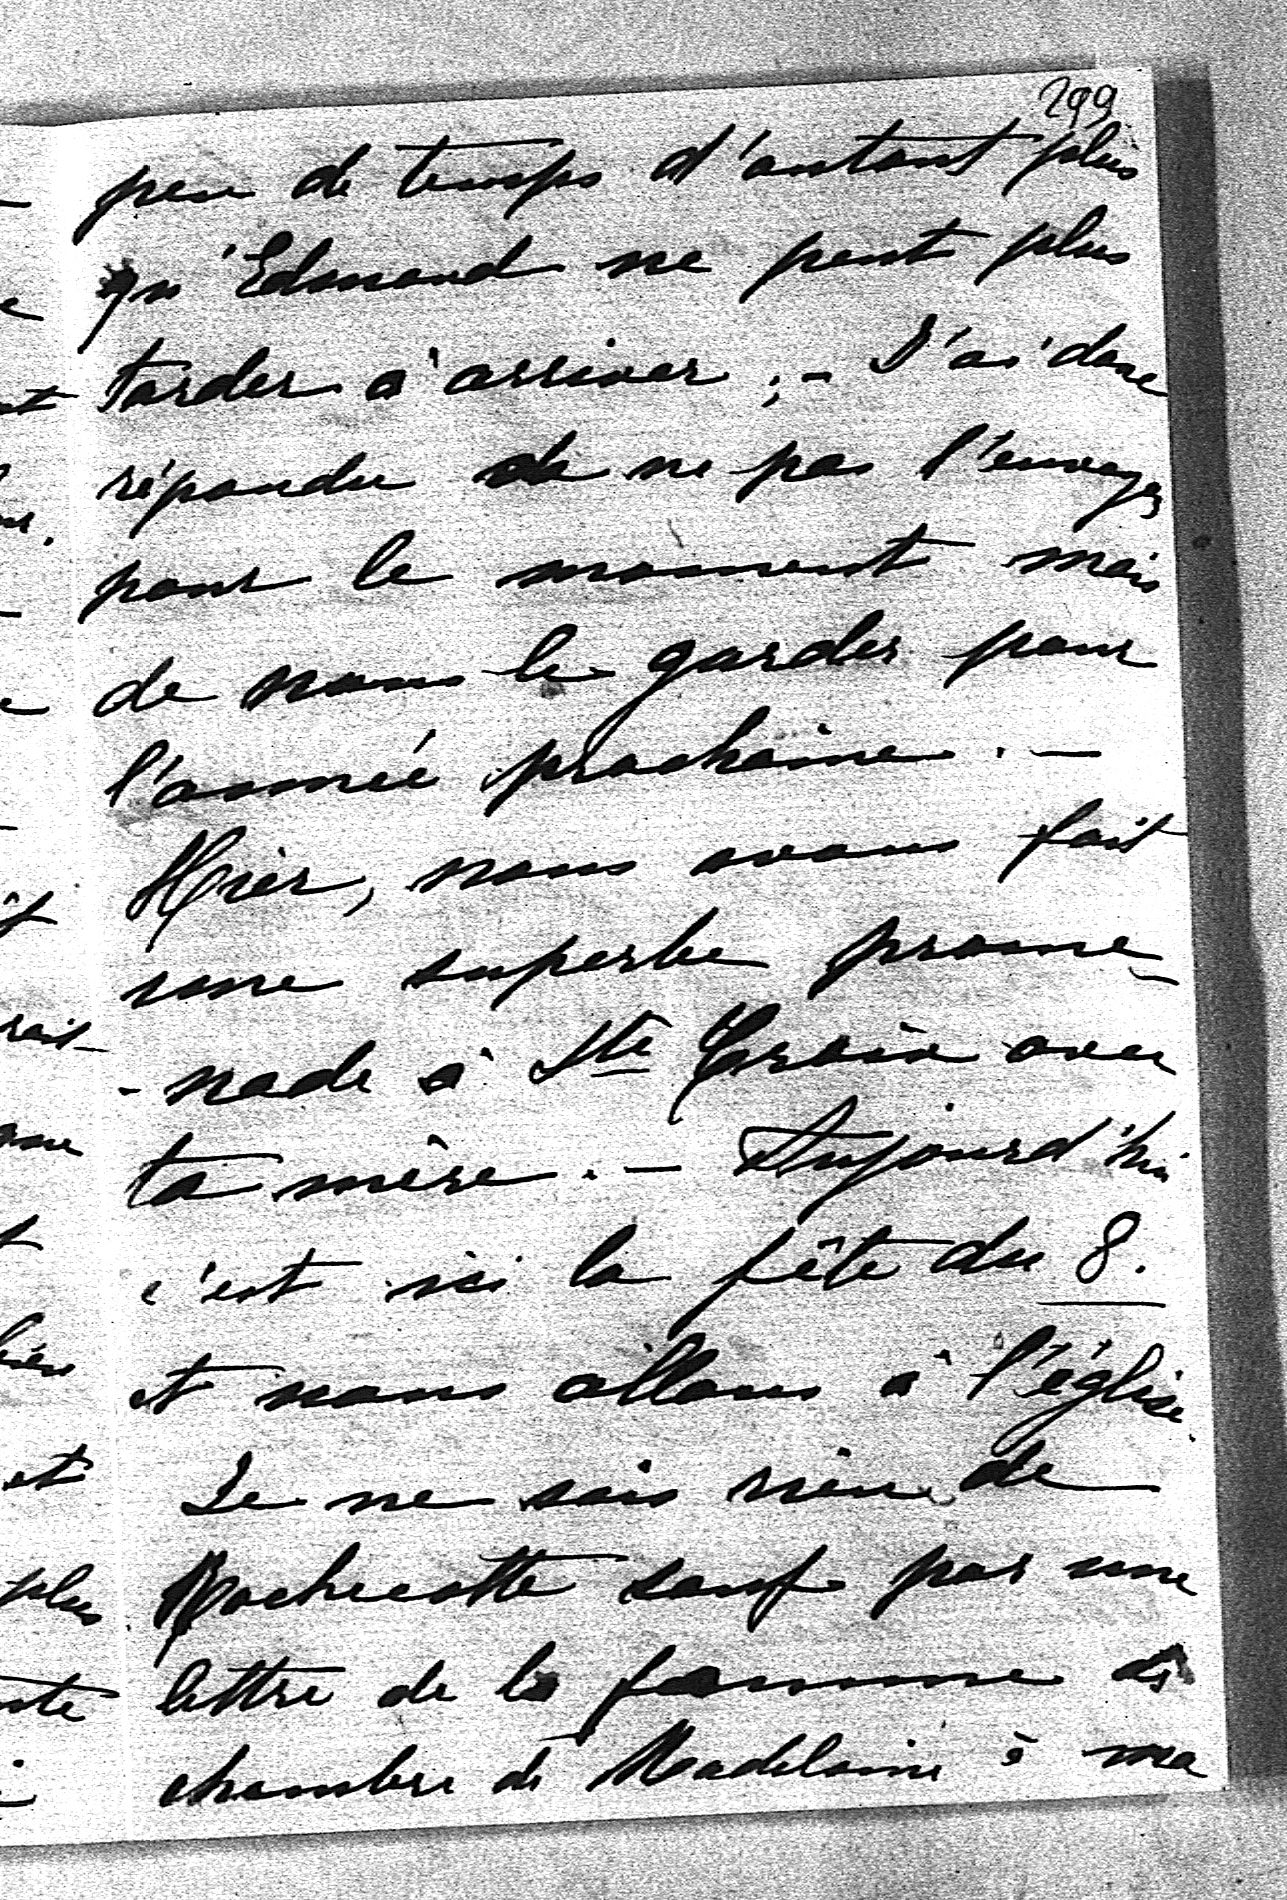 299
peu de temps d'autant plus
qu'Edmond ne peut plus
tarder à arriver ; - J'ai donc
répondu de ne pas l'envoyer
pour le moment mais
de nous le garder pour
l'année prochaine . -
Hier, nous avons fait
une superbe prome-
- nade à Ste Croix avec
ta mère . - Aujourd'hui
c'est ici la fête du 8.
et nous allons à l'église
Je ne sais rien de
Rochecotte sauf par une
lettre de la femme de
chambre de Madelaine à ma